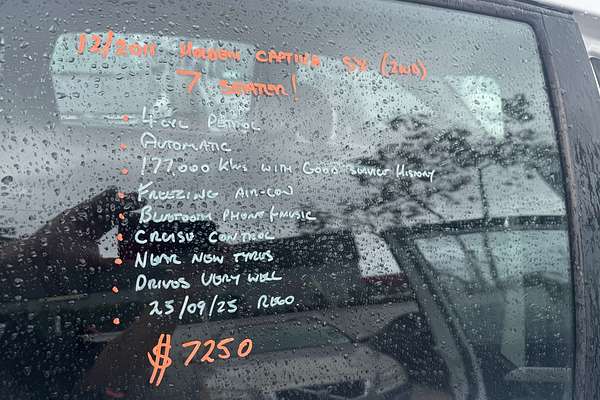 12/2011 HOLDEN CAPTIVA SX (2WD)
7 SEATER!
• 4 CYL PETROL
• AUTOMATIC
• 177.000 KMS WITH GOOD SERVICE HISTORY
• FREEZING AIR-CON
• BLUETOOTH PHONE + MUSIC
• CRUISE CONTROL
• NEAR NEW TYRES
• DRIVES VERY WELL
• 25/09/25 REGO
$7250